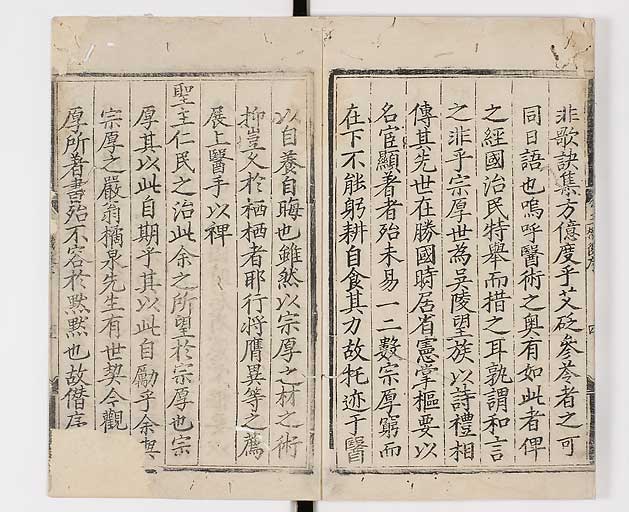 非歌訣集方億度乎文砭參苓者之可
同日語也嗚呼醫術之奥有如此者俾
之經國治民特舉而措之耳孰謂和言
之非乎宗厚世為吴陵望族以詩禮相
傳其先世在勝國時居省憲掌樞要以
名宦顯著者殆未易一二數宗厚窮而
在下不能躬耕自食其力故托迹于醫
以自養自晦也雖然以宗厚之材之術
抑豈久於栖栖者耶行将膺異等之薦
展上醫手以裨
聖主仁民之治此余之所望於宗厚也宗
厚其以此自期乎其以此自勵乎余與
宗厚之嚴翁橘泉先生有世契今觀
厚所著書殆不容於黙黙也故僣序